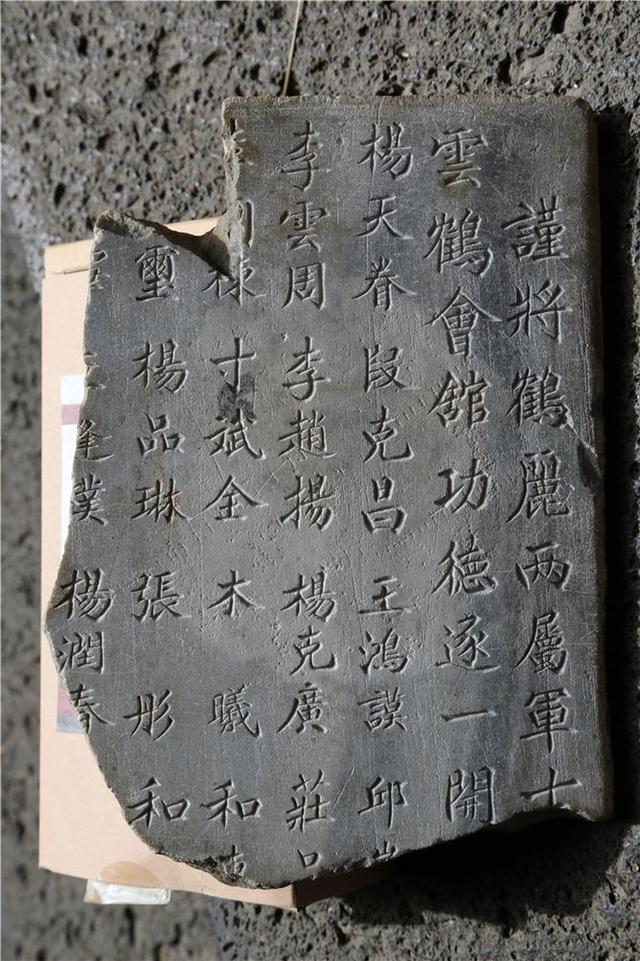 謹將鶴麗两屬軍
雲鶴會舘功德逐一開
楊天眷 段克昌 王鴻謨 邱
李雲周 李趙揚 楊克廣 莊
寸斌全 木曦 和
璽 楊品琳 張彤 和
楊潤春